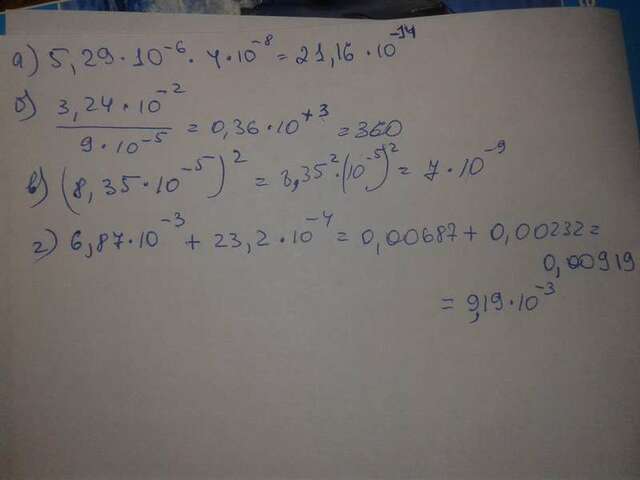 а) 5,29·10⁻⁶·4·10⁻⁸ = 21,16·10⁻¹⁴
б) 3,24·10⁻² / 9·10⁻⁵ = 0,36·10⁺³ = 360
в) (8,35·10⁻⁵)² = 8,35²·(10⁻⁵)² = 7·10⁻⁹
г) 6,87·10⁻³ + 23,2·10⁻⁴ = 0,00687 + 0,00232 =
0,00919
= 9,19·10⁻³